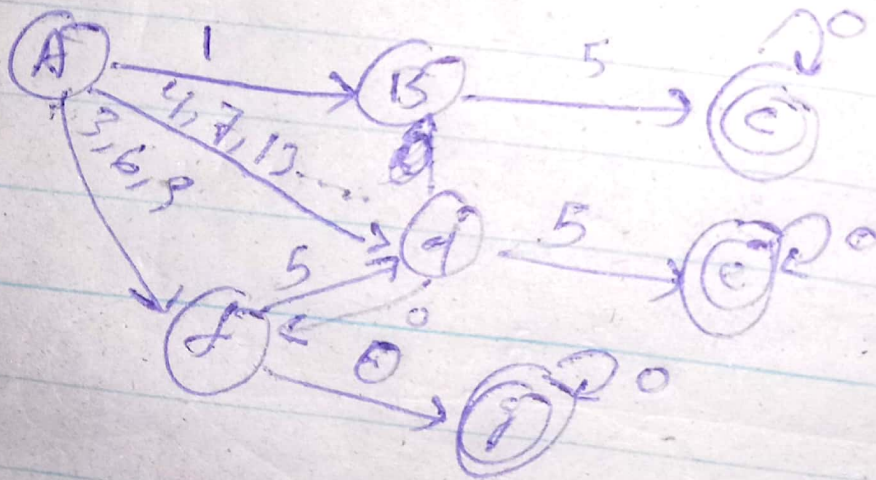 A 1 B 5 c 0
4, 7, 13....
3, 6, 9
d 5 e 0
5
f 0
0 0